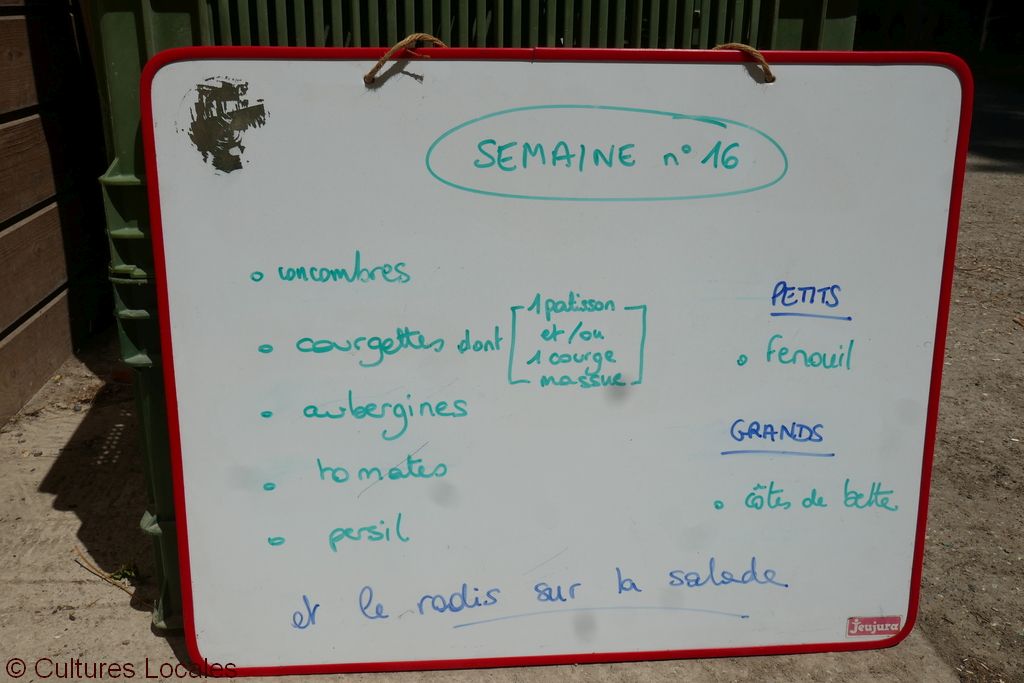 SEMAINE n° 16
concombres
courgettes dont
1 patisson
et/ou
1 courge
massue
aubergines
tomates
persil
PETITS
fenouil
GRANDS
côtes de bette
et le radis sur la salade
Jeujura
© Cultures Locales